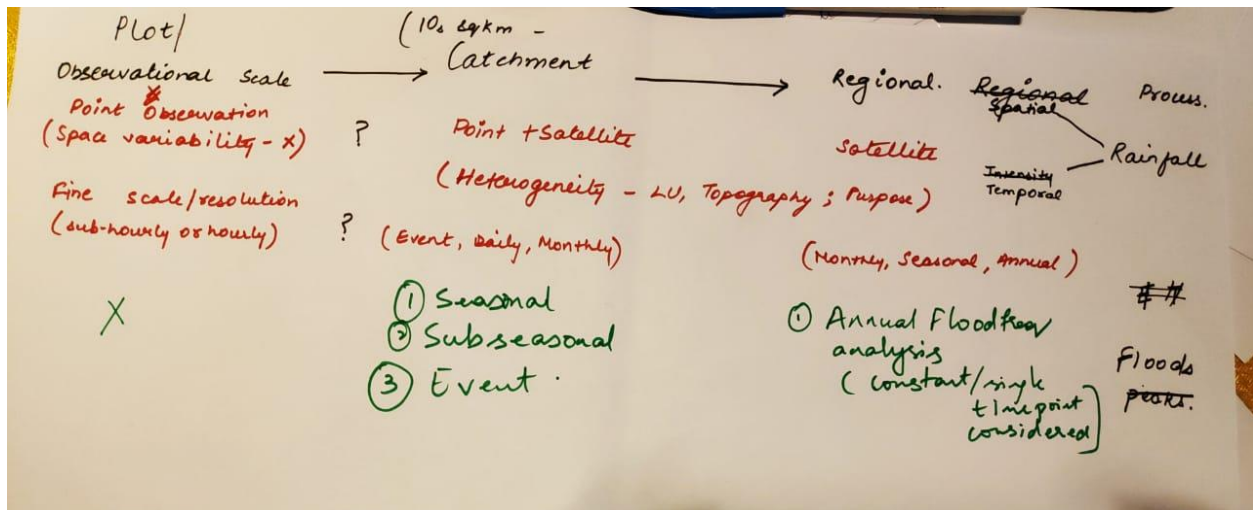 Plot/
(10s sqkm -
Observational Scale → Catchment → Regional. Regional Process.
Spatial
Point Observation
(Space variability - x) ? Point + Satellite Satellite Rainfall
(Heterogeneity - LU, Topography ; Purpose) Intensity
Temporal
Fine scale/resolution
(sub-hourly or hourly) ? (Event, Daily, Monthly) (Monthly, Seasonal, Annual)
X
① Seasonal
② Subseasonal
③ Event .
① Annual Flood freq
analysis
( constant/single
timepoint
considered)
Floods
peaks.